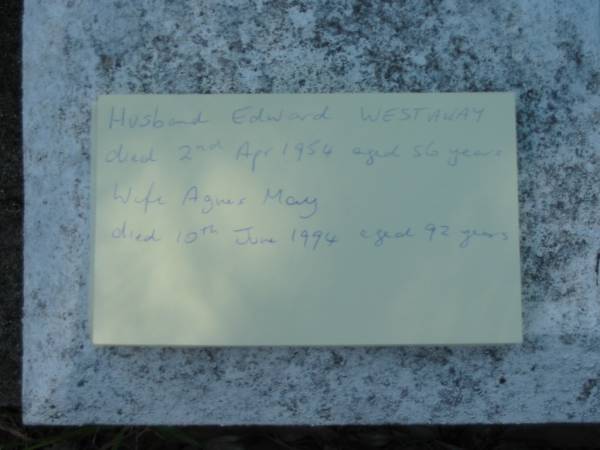 Husband Edward WESTAWAY
died 2nd Apr 1954 aged 56 years
Wife Agnes May
died 10th June 1994 aged 92 years